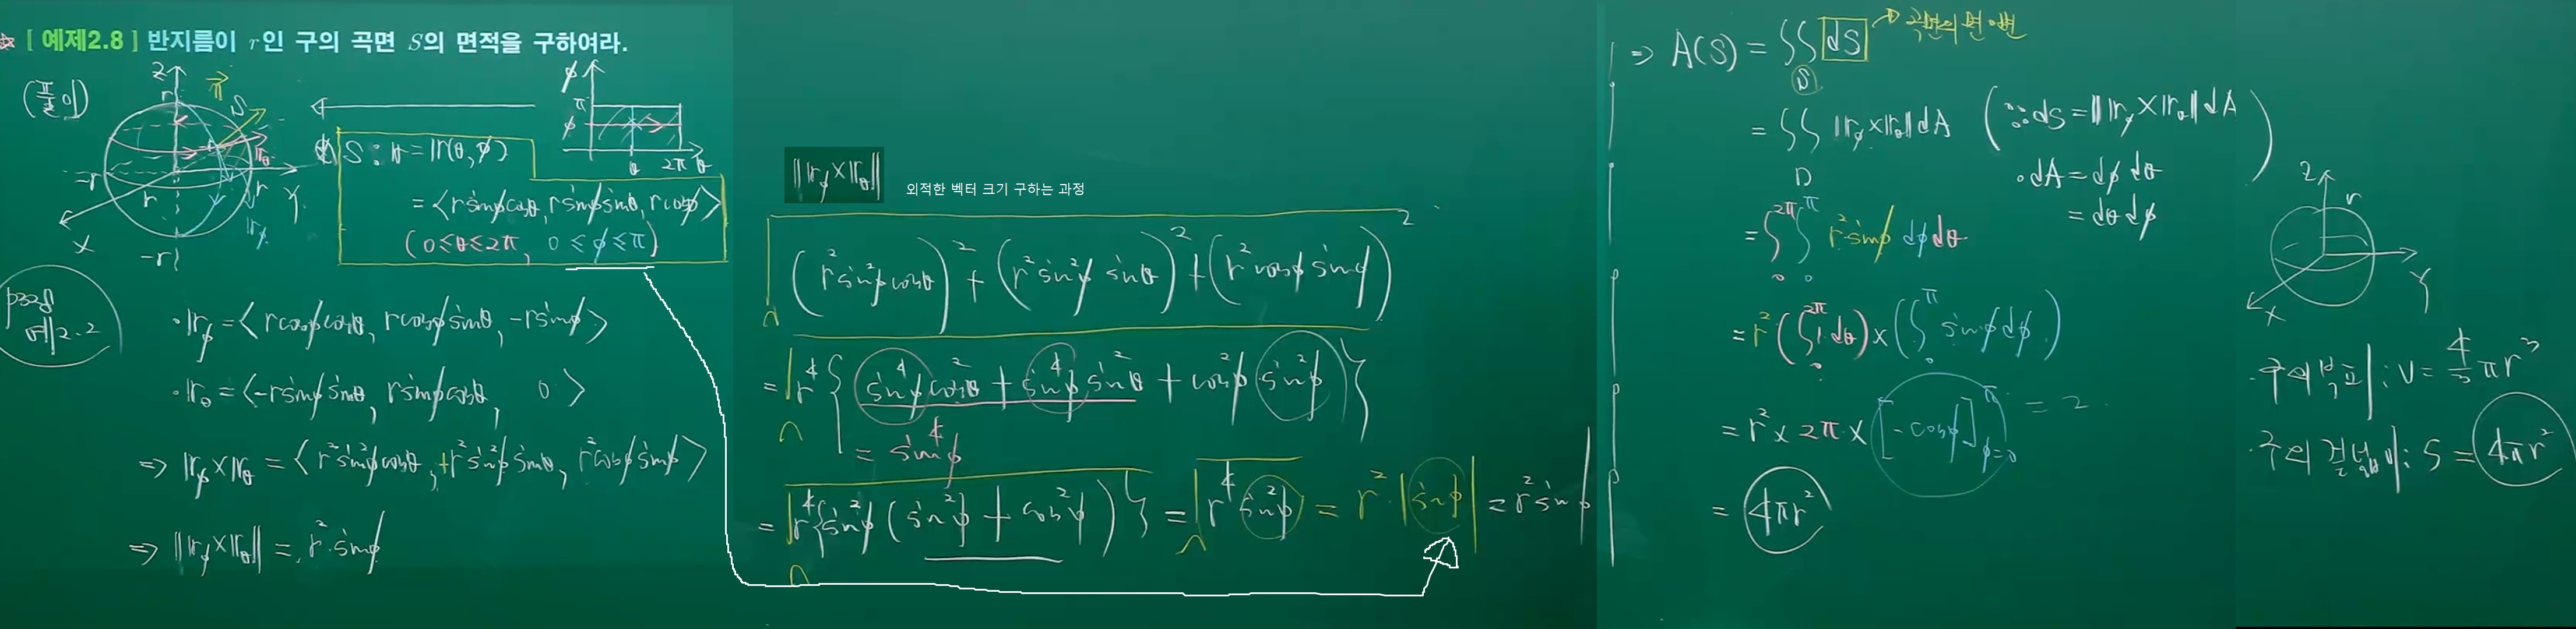 ☆ [ 예제2.8 ] 반지름이 r인 구의 곡면 S의 면적을 구하여라.
(풀이)
Z
r
n⃗
S
r_θ
-r
r
r
Y
r_φ
X
-r
φ
π
φ
θ 2π θ
S : r = r(θ, φ)
= <r sinφcosθ, r sinφ sinθ, r cosφ>
( 0≤θ≤2π, 0≤φ≤π )
예2.2
· r_φ = <r cosφ cosθ, r cosφ sinθ, -r sinφ>
· r_θ = <-r sinφ sinθ, r sinφ cosθ, 0>
⇒ r_φ × r_θ = <r² sin²φ cosθ, +r² sin²φ sinθ, r² cosφ sinφ>
⇒ ||r_φ × r_θ|| = r² sinφ
||r_φ × r_θ|| 외적한 벡터 크기 구하는 과정
√(r² sin²φ cosθ)² + (r² sin²φ sinθ)² + (r² cosφ sinφ)²
= √r⁴ { sin⁴φ cos²θ + sin⁴φ sin²θ + cos²φ sin²φ }
= sin⁴φ
= √r⁴{sin²φ (sin²φ + cos²φ)} = √r⁴ sin²φ = r² · |sinφ| = r² sinφ
⇒ A(S) = ∬_S dS → 곡면의 면적소
= ∬_D ||r_φ × r_θ|| dA ( ∵ dS = ||r_φ × r_θ|| dA )
· dA = dφ dθ
= dθ dφ
= ∫₀^2π ∫₀^π r² sinφ dφ dθ
= r² (∫₀^2π 1 dθ) × (∫₀^π sinφ dφ)
= r² × 2π × [-cosφ]^π_φ=0 = 2
= 4πr²
Z
r
Y
X
· 구의 부피 : V = 4/3 πr³
· 구의 겉넓이 : S = 4πr²